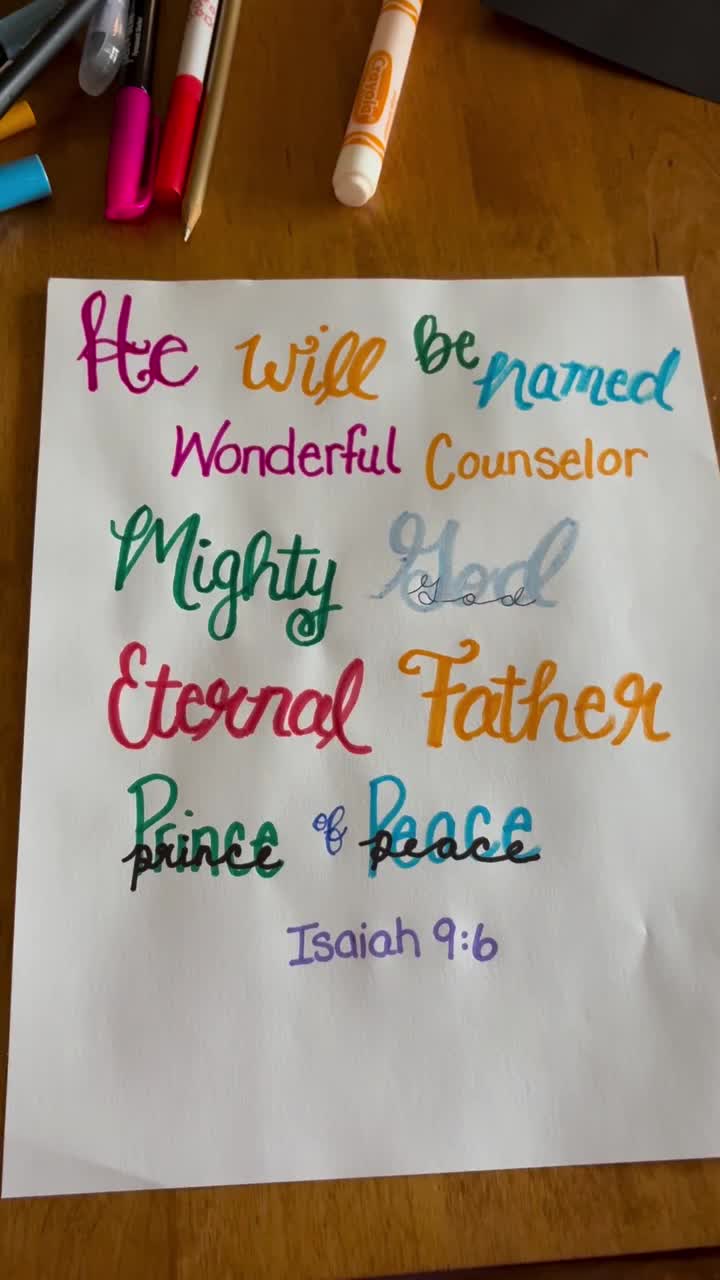 Crayola
He will be named
Wonderful Counselor
Mighty God
God
Eternal Father
Prince of Peace
prince peace
Isaiah 9:6